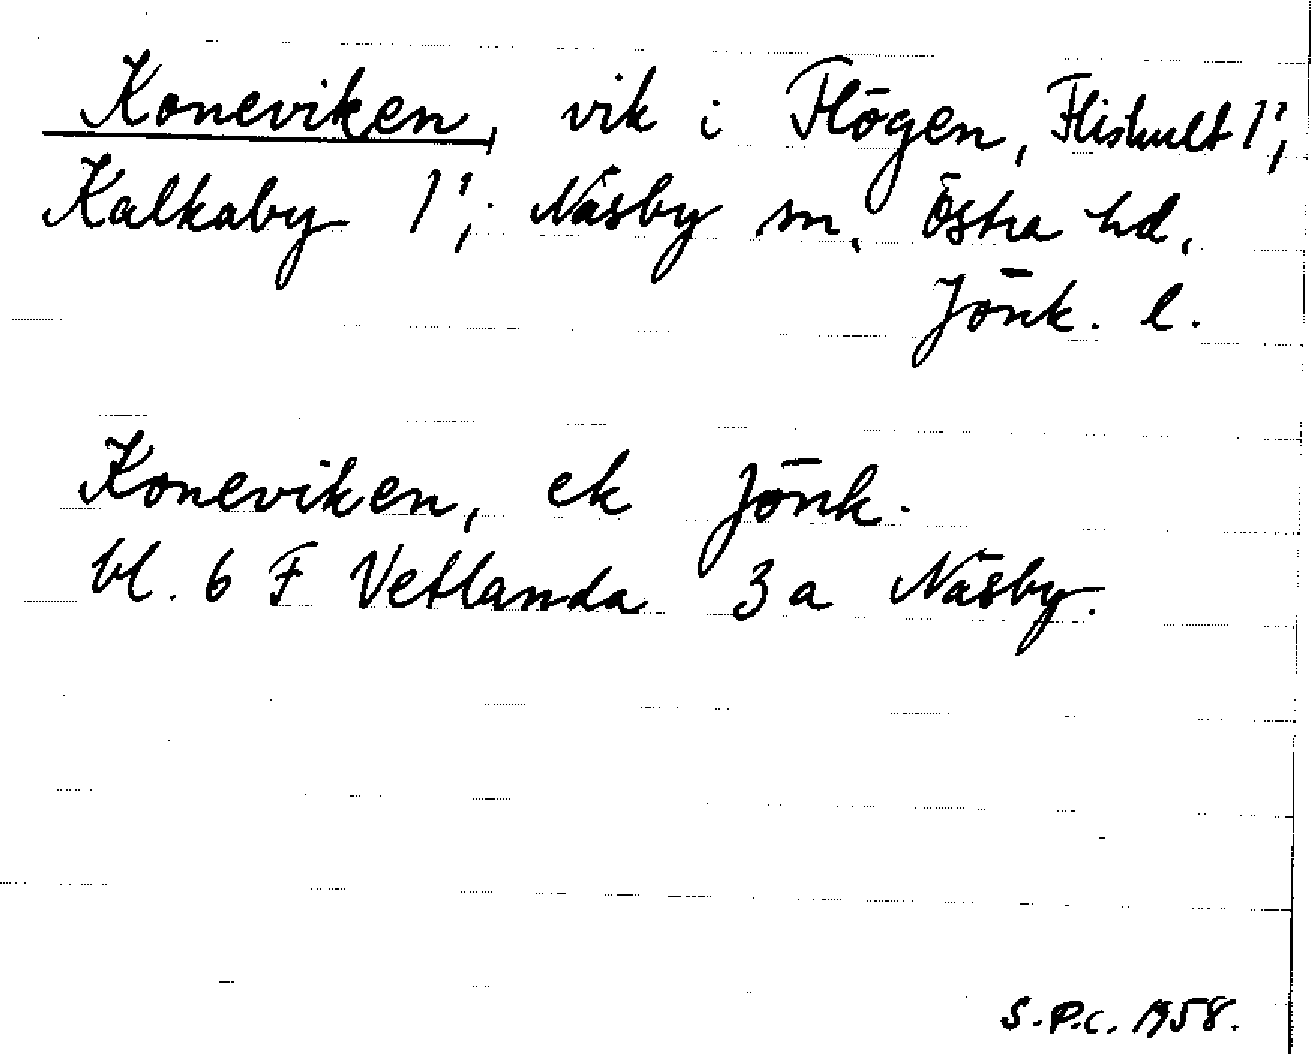 Koneviken, vik i Flögen, Fliskult 1';
Kalkaby 1'; Näsby sn, Östra hd,
Jönk. l.
Koneviken, ek Jönk.
bl. 6 F Vetlanda 3a Näsby.
S.P.C. 1958.